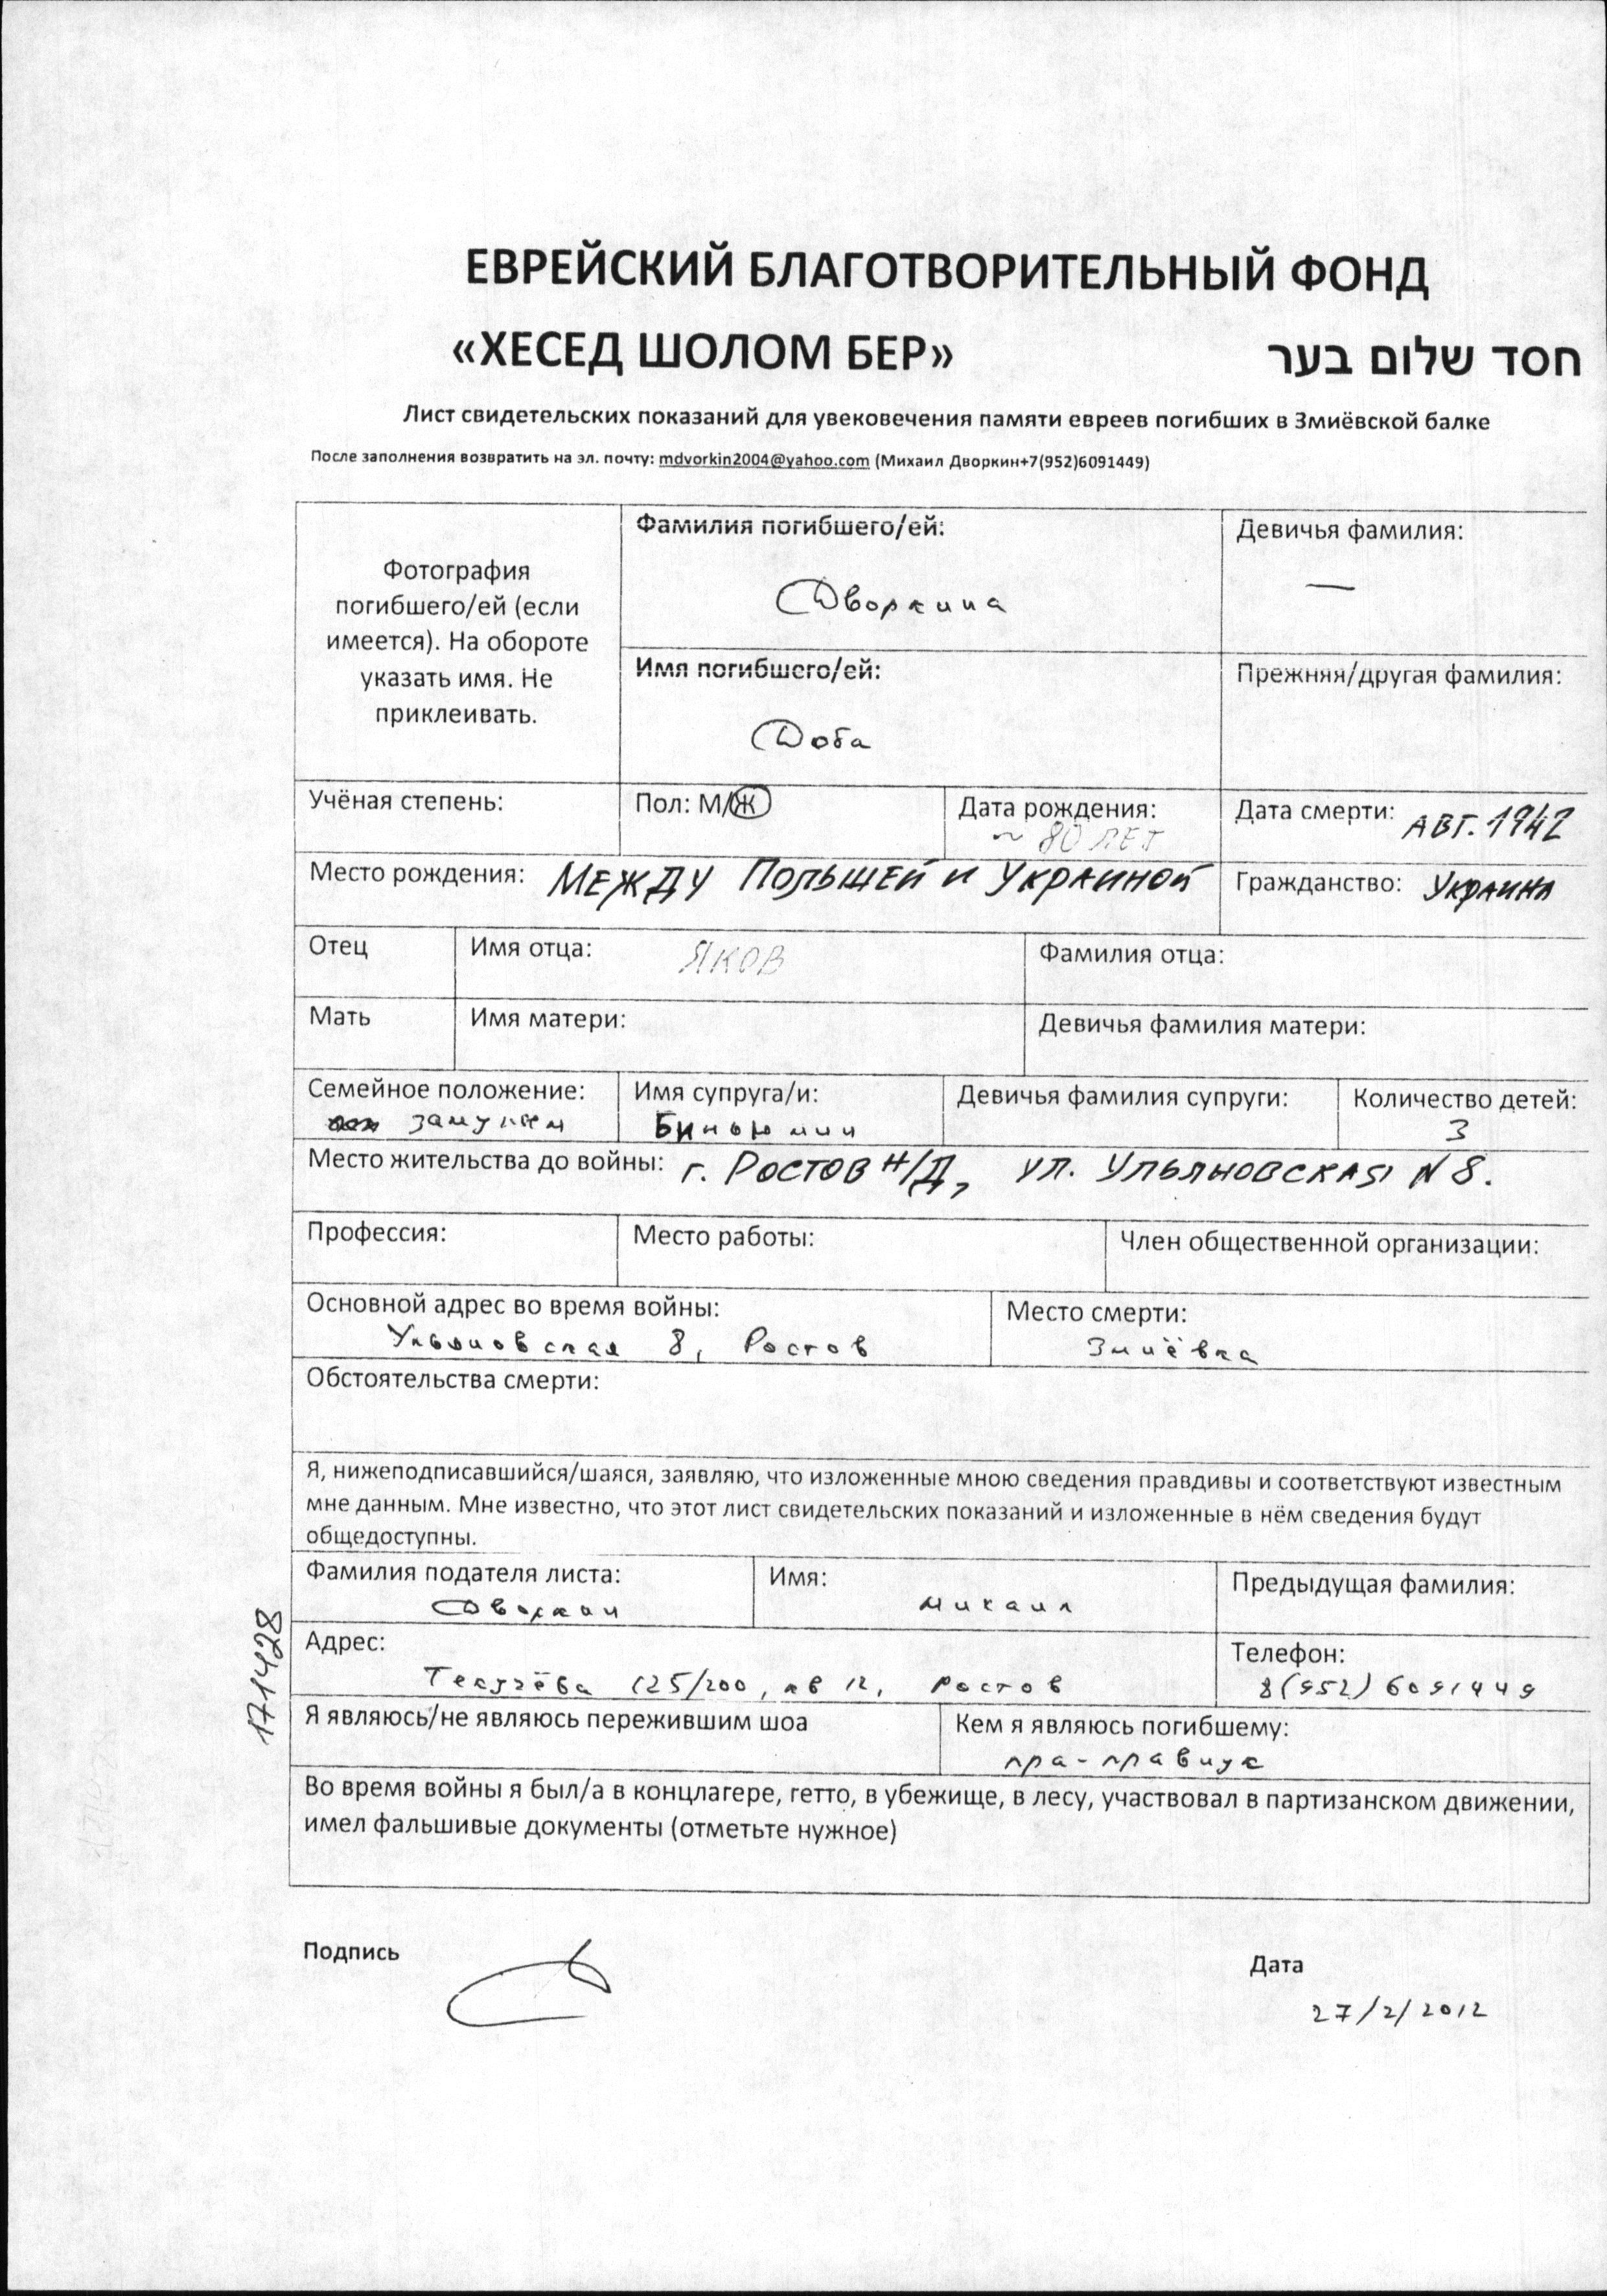 ЕВРЕЙСКИЙ БЛАГОТВОРИТЕЛЬНЫЙ ФОНД
«ХЕСЕД ШОЛОМ БЕР» חסד שלום בער
Лист свидетельских показаний для увековечения памяти евреев погибших в Змиёвской балке
После заполнения возвратить на эл. почту: mdvorkin2004@yahoo.com (Михаил Дворкин+7(952)6091449)
Фотография
погибшего/ей (если
имеется). На обороте
указать имя. Не
приклеивать.
Фамилия погибшего/ей:
Дворкина
Девичья фамилия:
—
Имя погибшего/ей:
Доба
Прежняя/другая фамилия:
Учёная степень:
Пол: М/Ж
Дата рождения:
~ 80 ЛЕТ
Дата смерти: АВГ. 1942
Место рождения: МЕЖДУ ПОЛЬШЕЙ И УКРАИНОЙ
Гражданство: УКРАИНА
Отец
Имя отца: ЯКОВ
Фамилия отца:
Мать
Имя матери:
Девичья фамилия матери:
Семейное положение:
замужем
Имя супруга/и:
Биньюмин
Девичья фамилия супруги:
Количество детей:
3
Место жительства до войны: г. РОСТОВ Н/Д, УЛ. УЛЬЯНОВСКАЯ N 8.
Профессия:
Место работы:
Член общественной организации:
Основной адрес во время войны:
Ульяновская 8, Ростов
Место смерти:
Змиёвка
Обстоятельства смерти:
Я, нижеподписавшийся/шаяся, заявляю, что изложенные мною сведения правдивы и соответствуют известным
мне данным. Мне известно, что этот лист свидетельских показаний и изложенные в нём сведения будут
общедоступны.
Фамилия подателя листа:
Дворкин
Имя:
Михаил
Предыдущая фамилия:
Адрес:
Текучёва 125/200, кв 12, Ростов
Телефон:
8(952) 6091449
Я являюсь/не являюсь пережившим шоа
Кем я являюсь погибшему:
пра-правнук
Во время войны я был/а в концлагере, гетто, в убежище, в лесу, участвовал в партизанском движении,
имел фальшивые документы (отметьте нужное)
171428
Подпись
Дата
27/2/2012